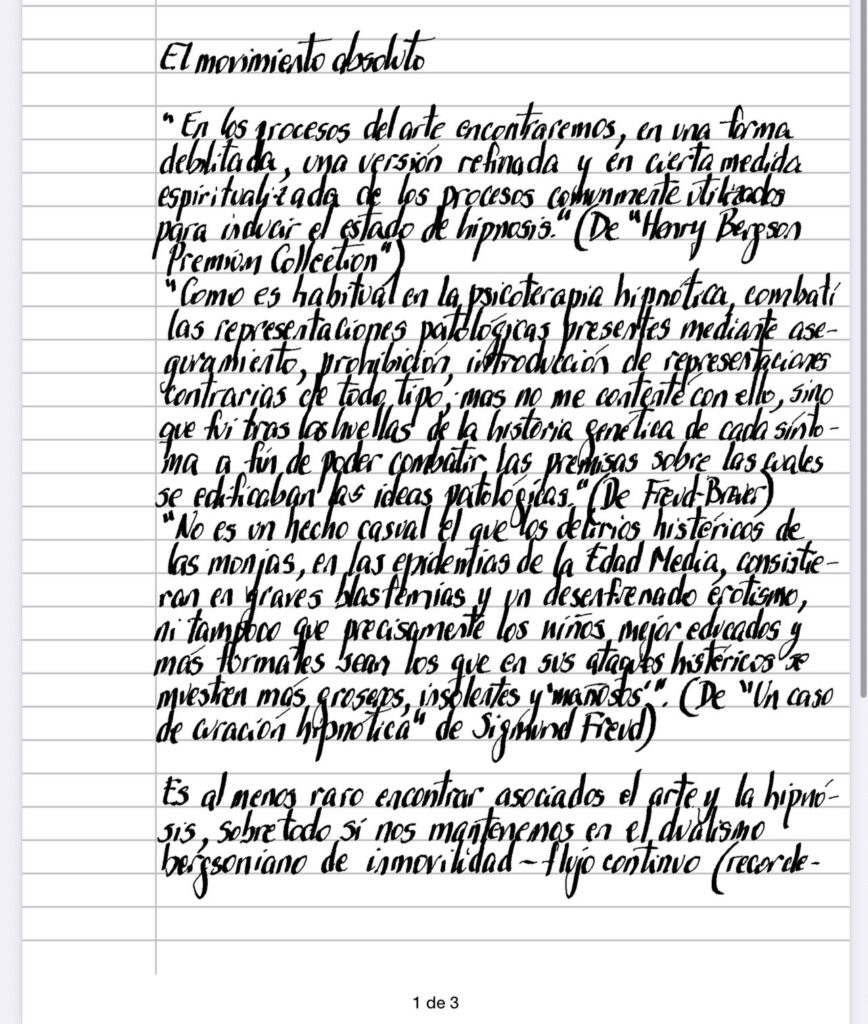 El movimiento absoluto
"En los procesos del arte encontraremos, en una forma
debilitada, una versión refinada y en cierta medida
espiritualizada de los procesos comunmente utilizados
para inducir el estado de hipnosis." (De "Henry Bergson
Premium Collection")
"Como es habitual en la psicoterapia hipnótica, combatí
las representaciones patológicas presentes mediante ase-
guramiento, prohibición, introducción de representaciones
contrarias de todo tipo, mas no me contenté con ello, sino
que fui tras las huellas de la historia genética de cada sínto-
ma a fin de poder combatir las premisas sobre las cuales
se edificaban las ideas patológicas." (De Freud-Breuer)
"No es un hecho casual el que los delirios histéricos de
las monjas, en las epidemias de la Edad Media, consistie-
ran en graves blasfemias y un desenfrenado erotismo,
ni tampoco que precisamente los niños mejor educados y
más formales sean los que en sus ataques histéricos se
muestren más groseros, insolentes y 'mañosos'". (De "Un caso
de curación hipnótica" de Sigmund Freud)
Es al menos raro encontrar asociados el arte y la hipnó-
sis, sobre todo si nos mantenemos en el dualismo
bergsoniano de inmovilidad - flujo continuo (recorde-
1 de 3